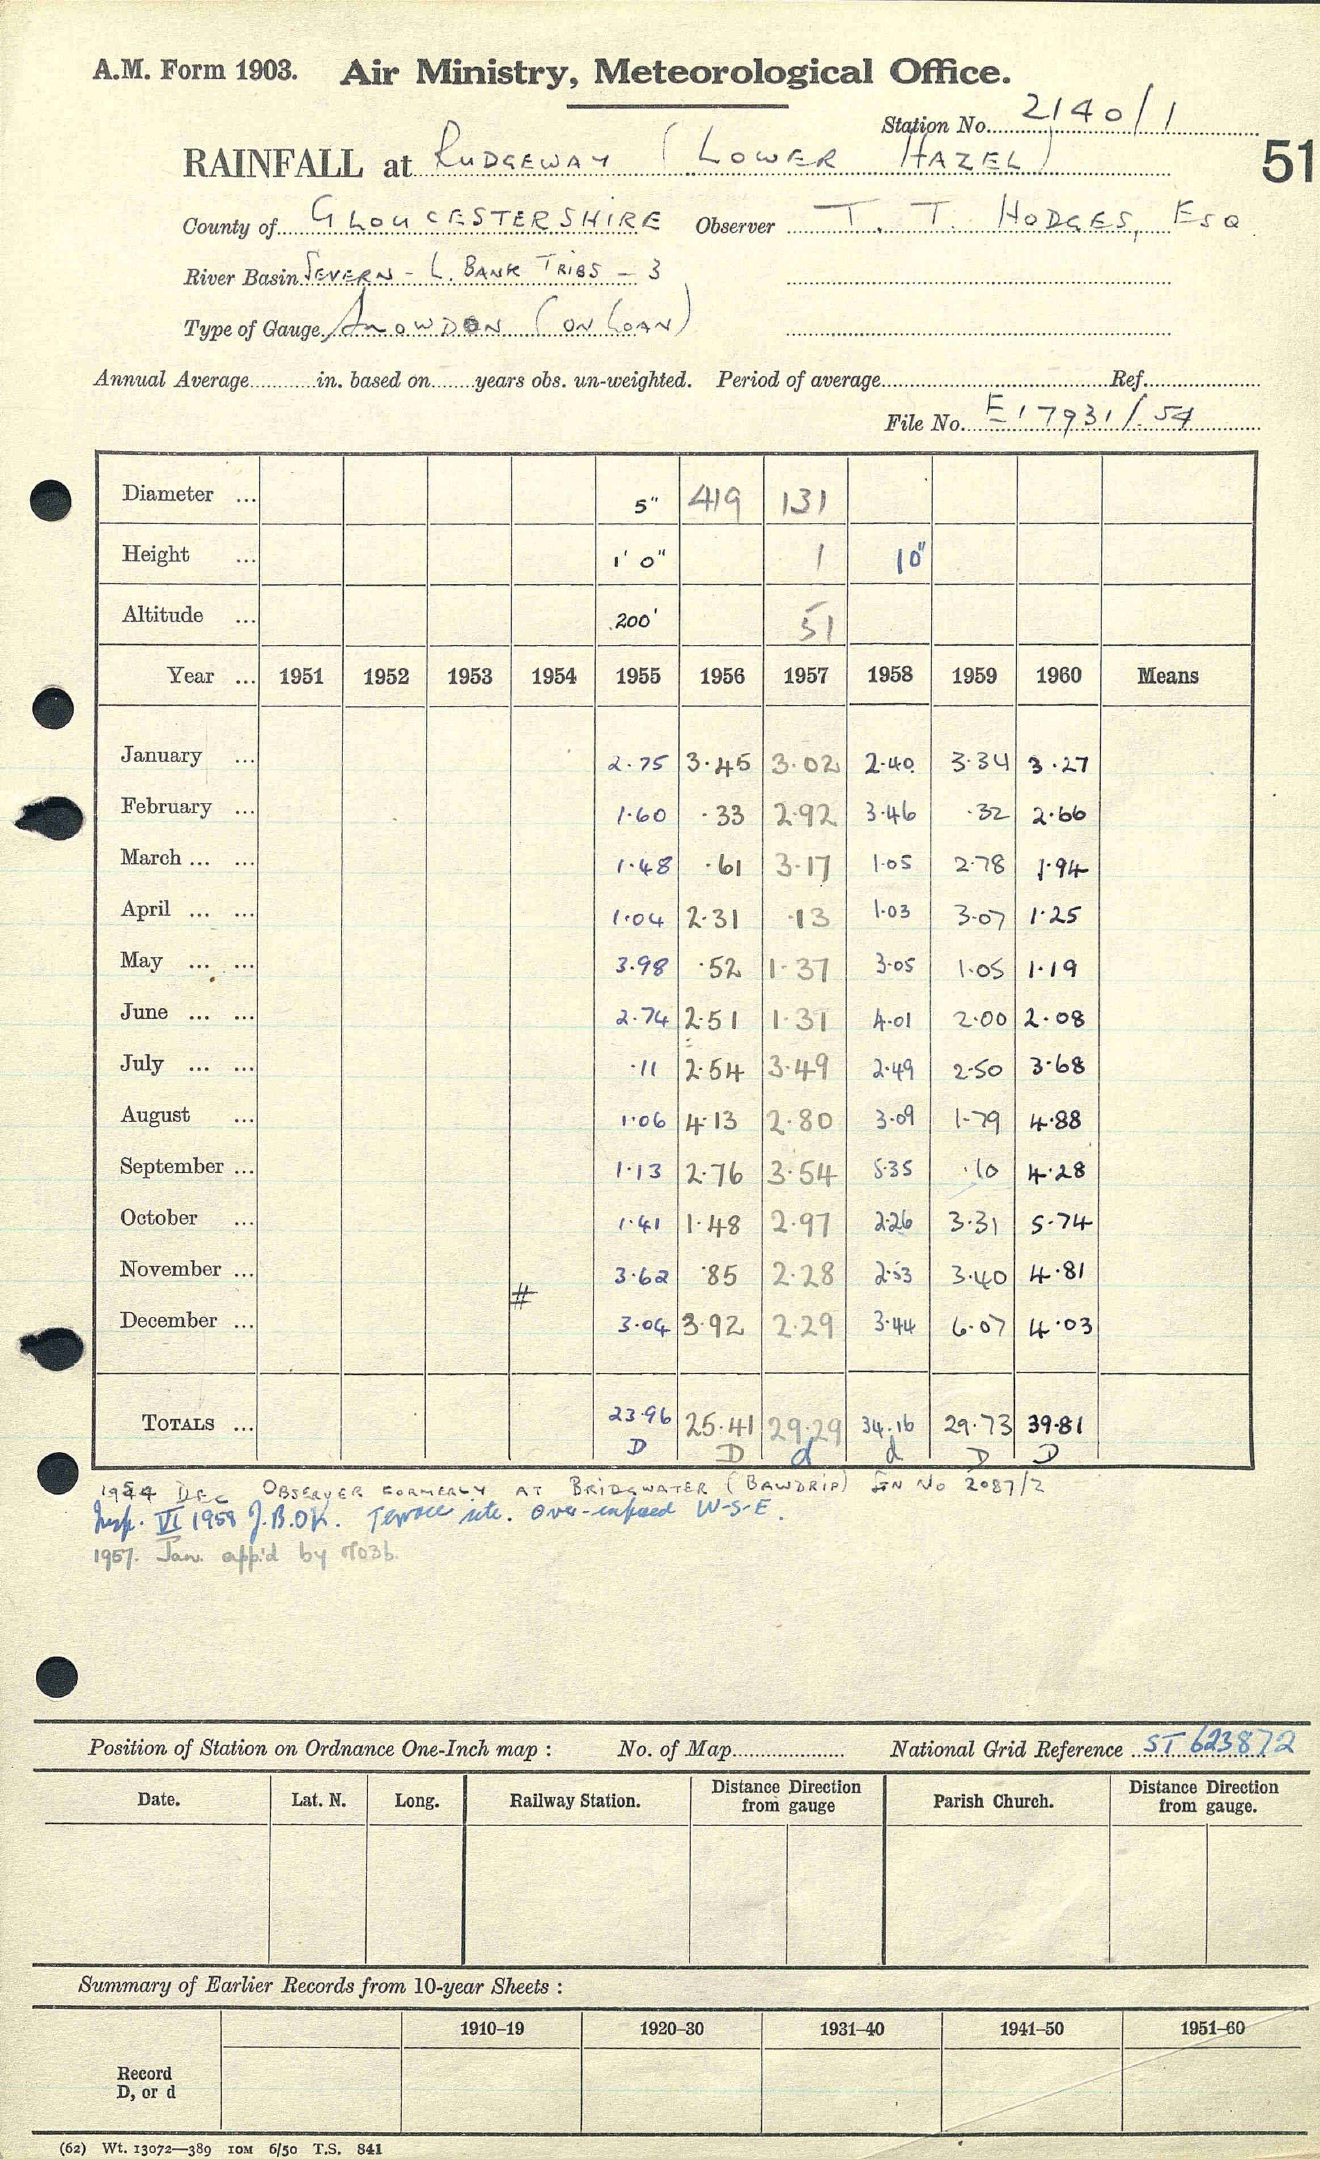 A.M. Form 1903. Air Ministry, Meteorological Office.
Station No. 2140/1
RAINFALL at RUDGEWAY (LOWER HAZEL) 51
County of GLOUCESTERSHIRE Observer T. T. HODGES, ESQ
River Basin SEVERN - L. BANK TRIBS - 3
Type of Gauge SNOWDON (ON LOAN)
Annual Average in. based on years obs. un-weighted. Period of average Ref.
File No. E17931/54
Diameter ... 5" 419 131
Height ... 1' 0" 1 10"
Altitude ... 200' 51
Year ... 1951 1952 1953 1954 1955 1956 1957 1958 1959 1960 Means
January ... 2.75 3.45 3.02 2.40 3.34 3.27
February ... 1.60 .33 2.92 3.46 .32 2.66
March ... ... 1.48 .61 3.17 1.05 2.78 1.94
April ... ... 1.04 2.31 .13 1.03 3.07 1.25
May ... ... 3.98 .52 1.37 3.05 1.05 1.19
June ... ... 2.74 2.51 1.31 4.01 2.00 2.08
July ... ... .11 2.54 3.49 2.49 2.50 3.68
August ... 1.06 4.13 2.80 3.09 1.79 4.88
September ... 1.13 2.76 3.54 5.35 .10 4.28
October ... 1.41 1.48 2.97 2.26 3.31 5.74
November ... 3.62 .85 2.28 2.53 3.40 4.81
#
December ... 3.04 3.92 2.29 3.44 6.07 4.03
TOTALS ... 23.96 25.41 29.29 34.16 29.73 39.81
D D d d D D
1954 DEC OBSERVER FORMERLY AT BRIDGWATER (BAWDRIP) STN No 2087/2
Insp. VI 1958 J.B.OK. Terrace site. Over-exposed W-S-E.
1957. Jan. app'd by MO3b.
Position of Station on Ordnance One-Inch map : No. of Map National Grid Reference ST 623872
Date. Lat. N. Long. Railway Station. Distance Direction from gauge Parish Church. Distance Direction from gauge.
Summary of Earlier Records from 10-year Sheets :
1910–19 1920–30 1931–40 1941–50 1951–60
Record
D, or d
(62) Wt. 13072—389 10M 6/50 T.S. 841